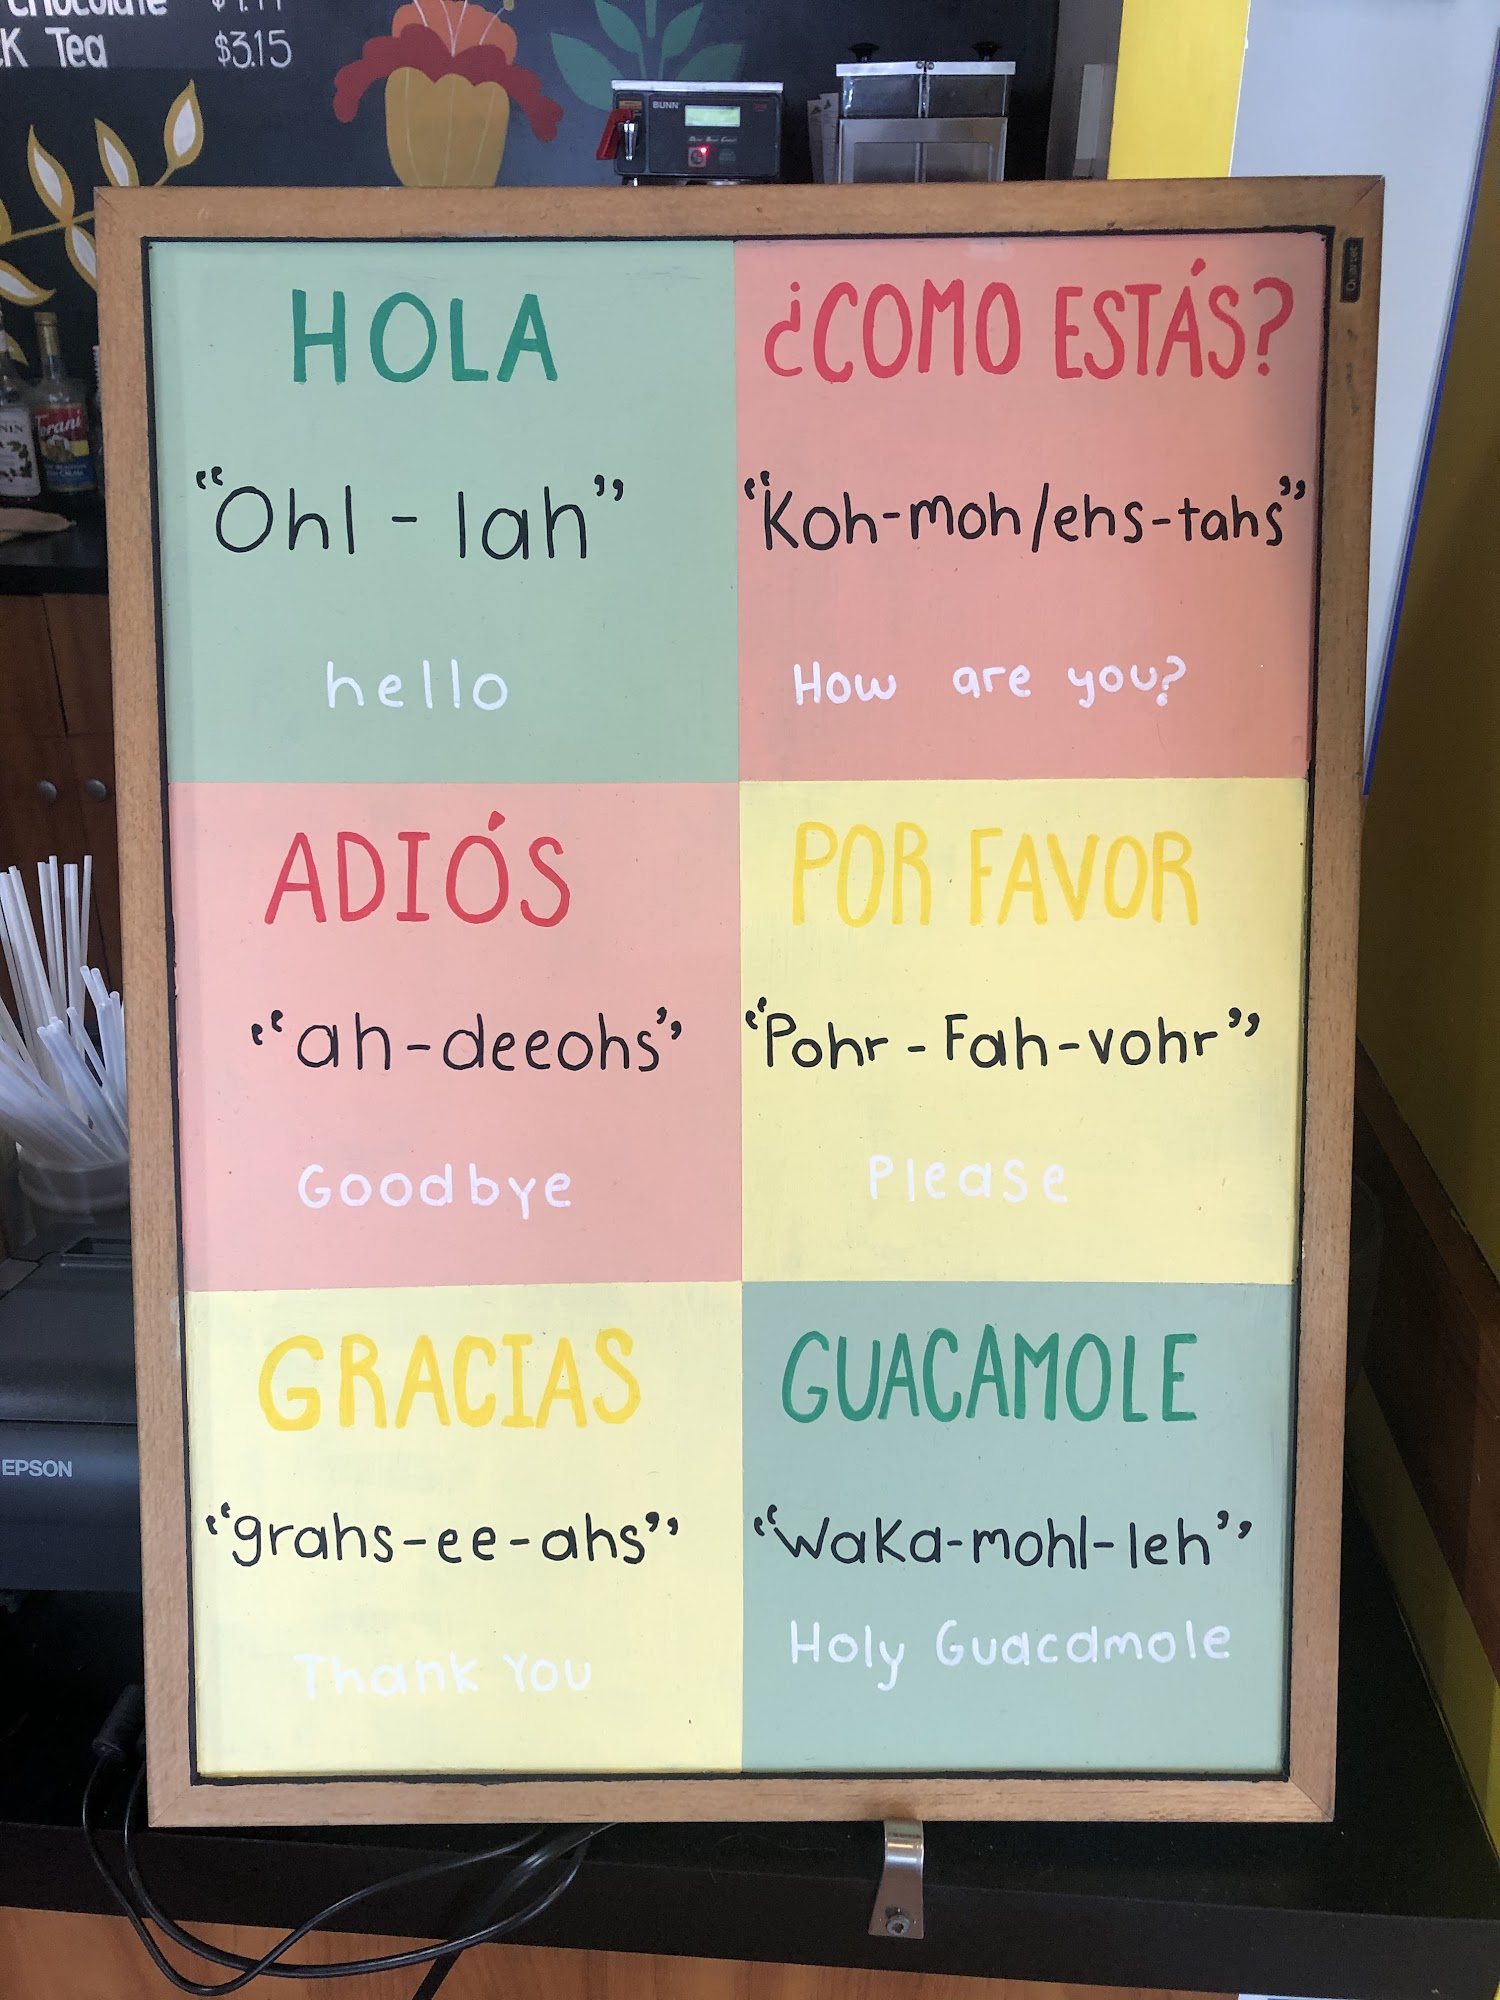 Tea $3.15
BUNN
Quartet
HOLA
“Ohl-lah”
hello
¿COMO ESTÁS?
“Koh-moh/ehs-tahs”
How are you?
ADIÓS
“ah-deeohs”
Goodbye
POR FAVOR
“Pohr-Fah-vohr”
Please
GRACIAS
“grahs-ee-ahs”
Thank You
GUACAMOLE
“Waka-mohl-leh”
Holy Guacamole
Torani
EPSON